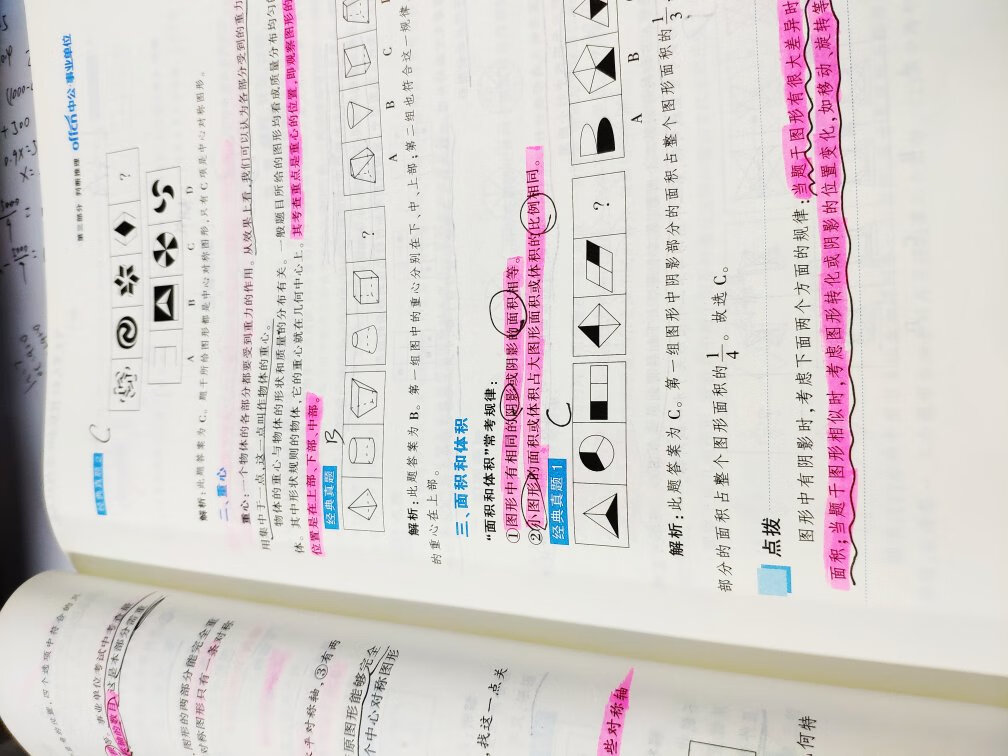 第三部分 判断推理
offcn中公·事业单位
经典真题2
C
?
A B C D
解析:此题答案为C。题干所给图形都是中心对称图形,只有C项是中心对称图形。
二、重心
重心:一个物体的各部分都要受到重力的作用。从效果上看,我们可以认为各部分受到的重力
用集中于一点,这一点叫作物体的重心。
物体的重心与物体的形状和质量的分布有关。一般题目所给的图形均看成质量分布均匀
体。其中形状规则的物体,它的重心就在几何中心上。其考查重点是重心的位置,即观察图形的
位置是在上部、下部、中部。
经典真题
B
?
A B C
解析:此题答案为B。第一组图中的重心分别在下、中、上部;第二组也符合这一规律
的重心在上部。
三、面积和体积
“面积和体积”常考规律:
①图形中有相同的阴影或阴影的面积相等。
②小图形的面积或体积占大图形面积或体积的比例相同。
经典真题1
C
?
A B
解析:此题答案为C。第一组图形中阴影部分的面积占整个图形面积的1/3
部分的面积占整个图形面积的1/4。故选C。
点拨
图形中有阴影时,考虑下面两个方面的规律:当题干图形有很大差异时
面积;当题干图形相似时,考虑图形转化或阴影的位置变化,如移动、旋转等
四个选项中符合的只
事业单位考试中考查频
这是本部分需重
图形的两部分能完全重
对称图形只有一条对称
对称轴,③有两
原图形能够完全
个中心对称图形
找这一点关
些对称轴
何特